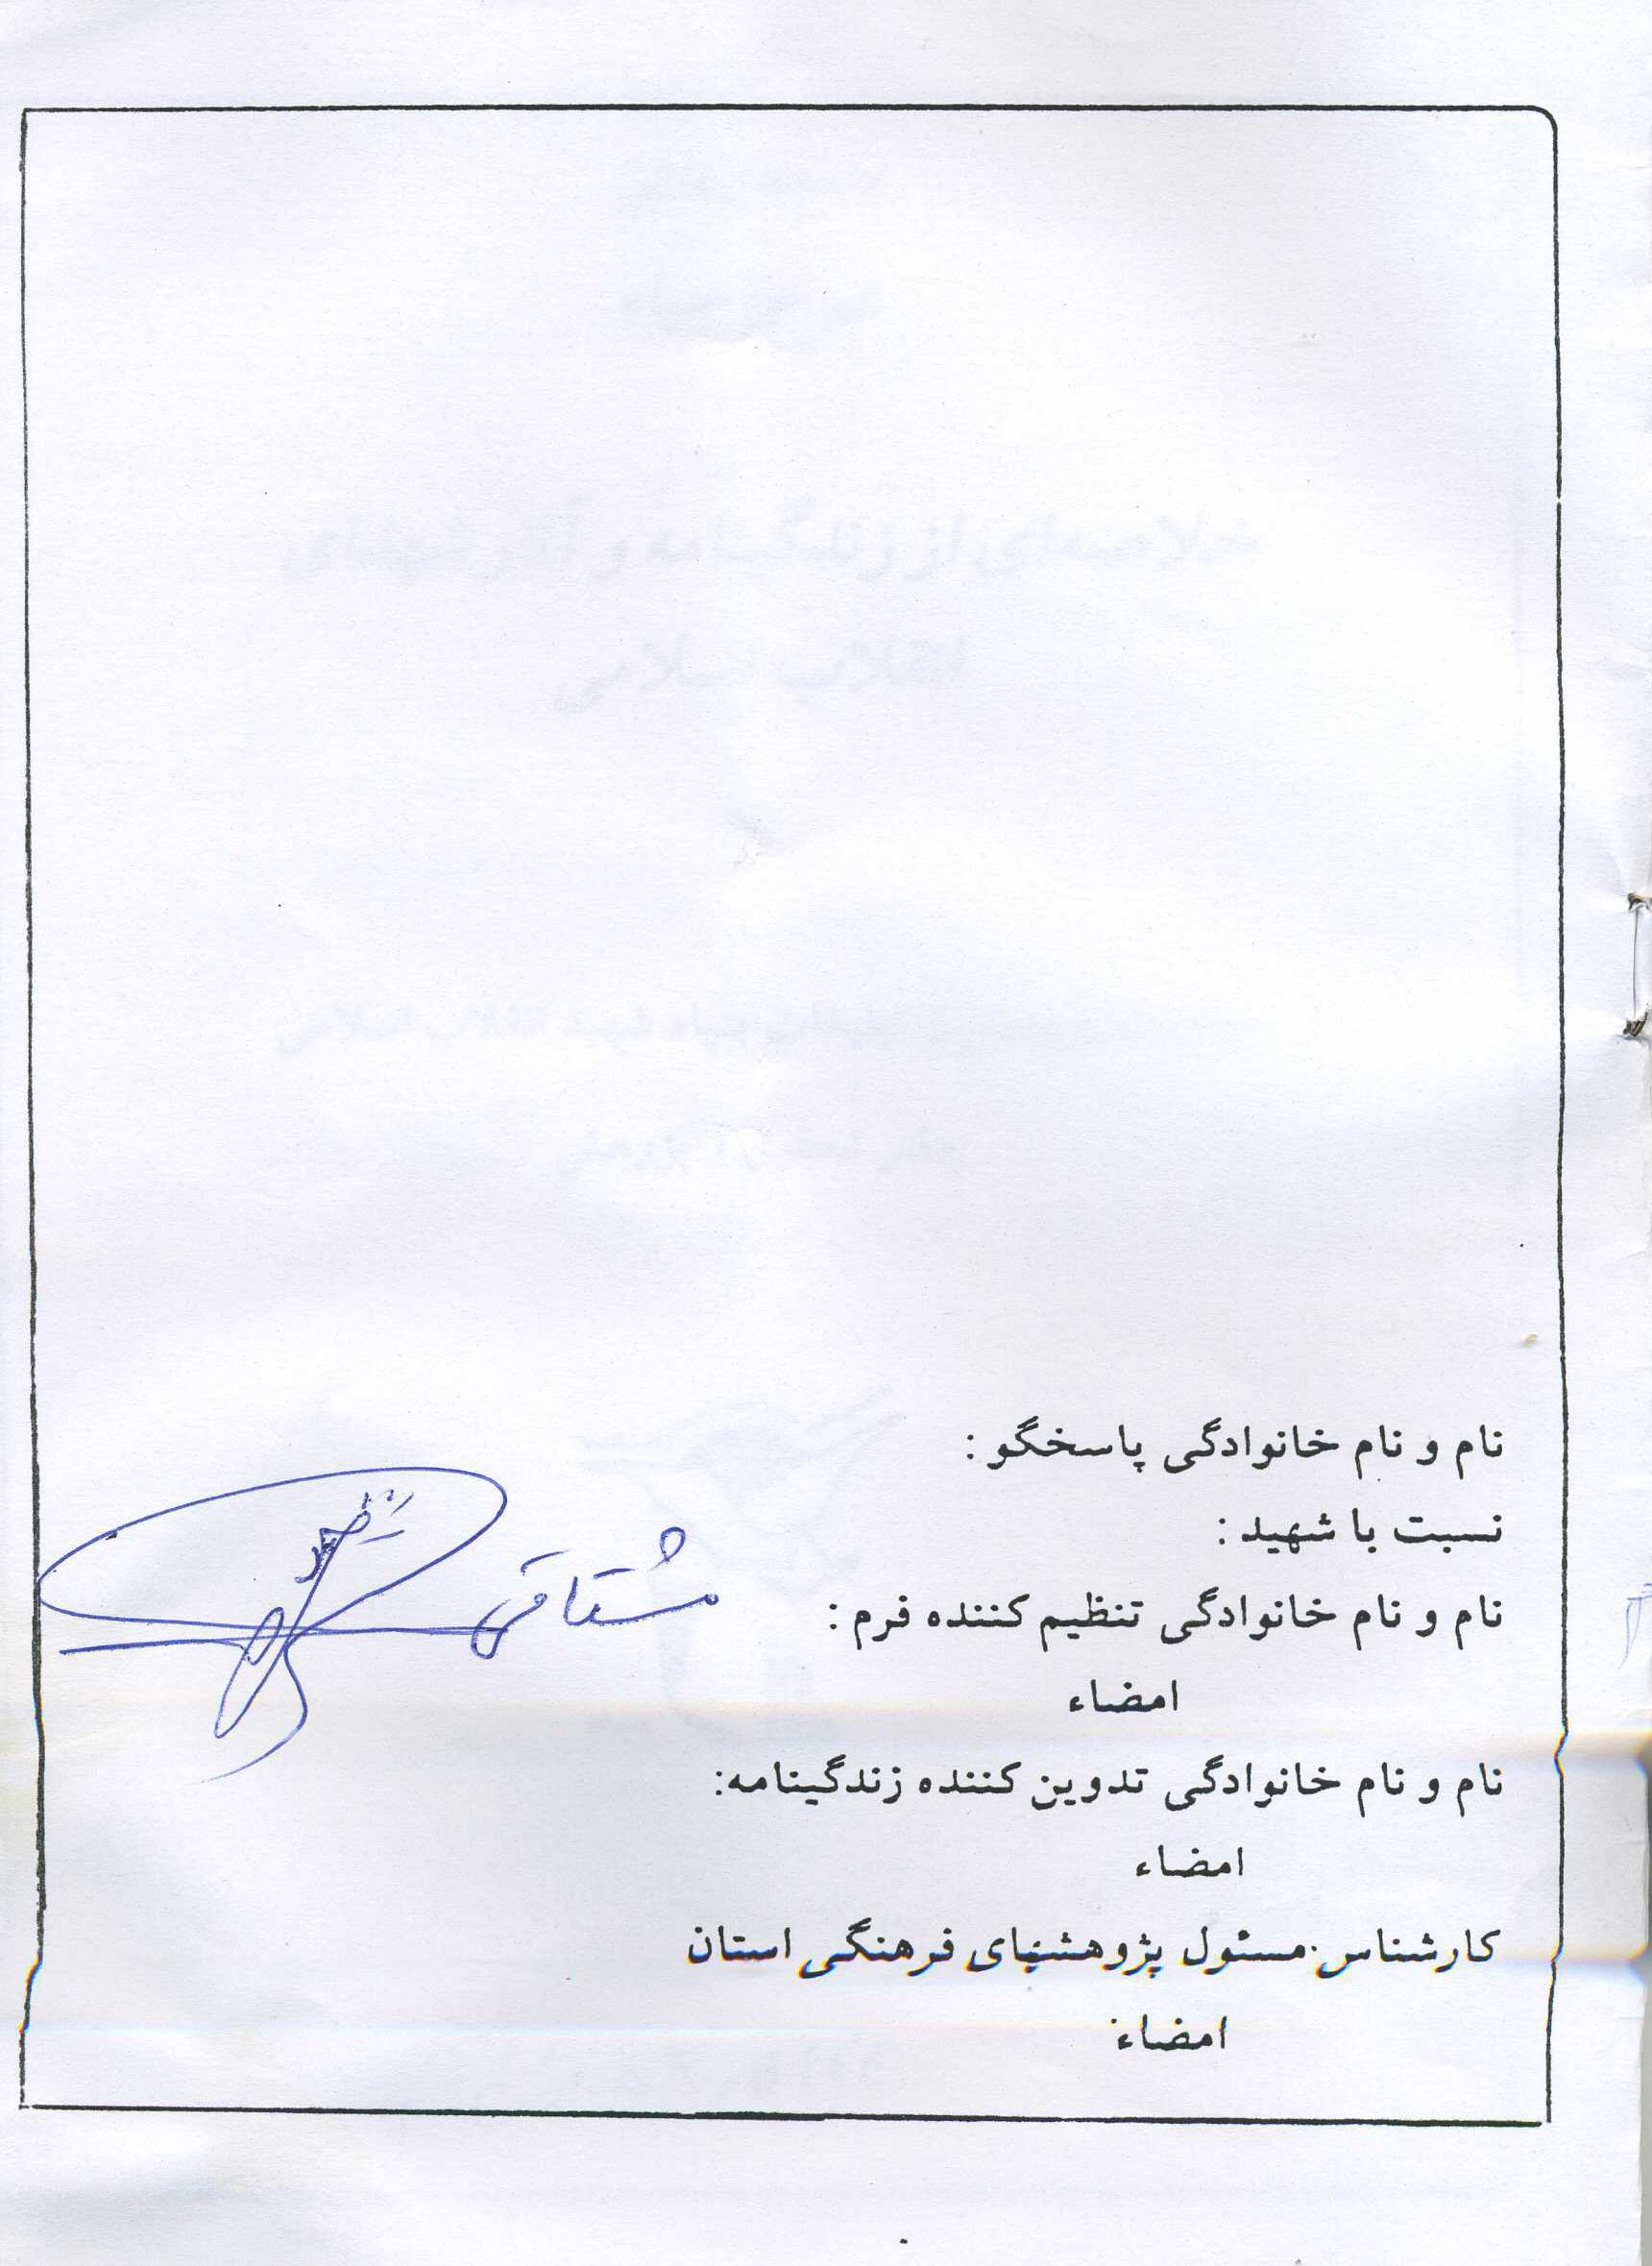 نام و نام خانوادگی پاسخگو :
نسبت با شهید :
نام و نام خانوادگی تنظیم کننده فرم : مشتاقی
امضاء
نام و نام خانوادگی تدوین کننده زندگینامه:
امضاء
کارشناس مسئول پژوهشهای فرهنگی استان
امضاء